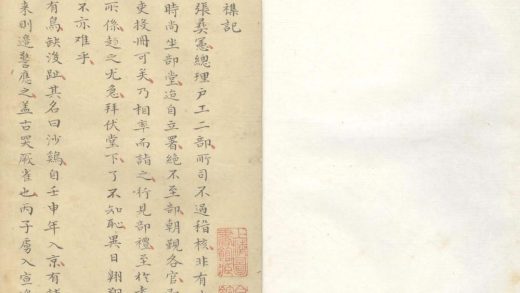 襍記
張彝憲總理戶工二部所司不過稽核非有
時尚坐部堂迨自立署絕不至部朝觀各官
吏投冊可矣乃相率而詣之行見部禮至於
所係趨之尤急拜伏堂下了不知恥異日翺翔
不亦难乎
有鳥缺後趾其名曰沙鷄自壬申年入京有
来則邊警應之蓋古哭厥雀也丙子虜入宣